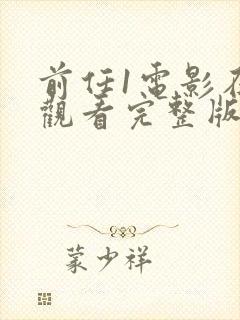 前任1電影在
觀看完整版
蒙少祥